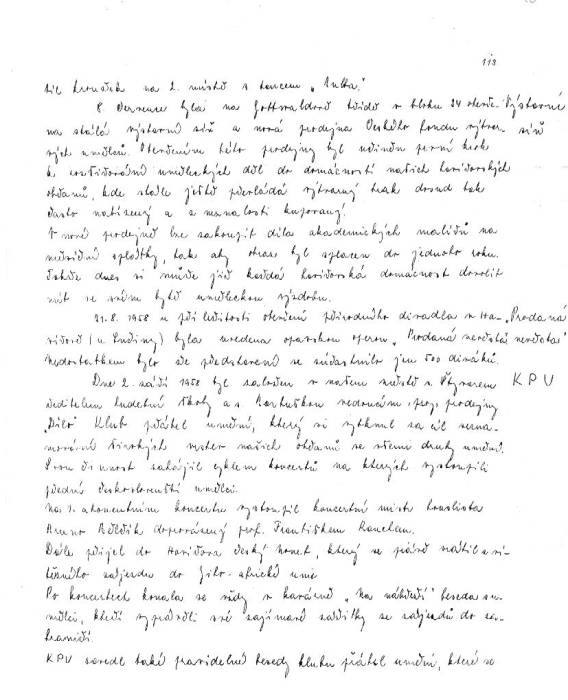 113
til kroužek na 2. místě s tancem „Anka."
8. července byla na Gottwaldově třídě v bloku 24 otevře- Výstavní
na stálá výstavní síň a nová prodejna Českého fondu výtvar- síň
ných umělců. Otevřením této prodejny byl učiněn první krok
k rozšiřování uměleckých děl do domácností našich havířovských
občanů, kde stále ještě převládá výtvarný brak dosud tak
často nabízený a z neznalosti kupovaný.
V nové prodejně lze zakoupit díla akademických malířů na
měsíční splátky, tak aby obraz byl splacen do jednoho roku.
Takže dnes si může již každá havířovská domácnost dovolit
mít ve svém bytě uměleckou výzdobu.
31.8. 1958 u příležitosti otevření přírodního divadla v Ha- „Prodaná
vířově (u Lučiny) byla uvedena opavskou operou „Prodaná nevěsta" nevěsta"
Nedostatkem bylo že představení se súčastnilo jen 500 diváků.
Dne 2. září 1958 byl založen v našem městě s. Čtyvarem KPV
ředitelem hudební školy a s. Bartuškou vedoucím prodejny
„Dílo" Klub přátel umění, který si vytknul za cíl sezna-
mování širokých vrstev našich občanů se všemi druhy umění.
Svou činnost zahájil cyklem koncertů na kterých vystoupili
přední českoslovenští umělci.
Na 1. abonentním koncertu vystoupil koncertní mistr houslista
Bruno Bělčík doprovázený prof. Františkem Rauchem.
Dále přijel do Havířova český nonet, který se právě vrátil z ví-
tězného zájezdu do Jiho-africké unie
Po koncertech konala se vždy v kavárně „Na nábřeží" beseda s u-
mělci, kteří vyprávěli své zajímavé zážitky ze zájezdů do za-
hraničí.
KPV zavedl také pravidelné besedy klubu přátel umění, které se